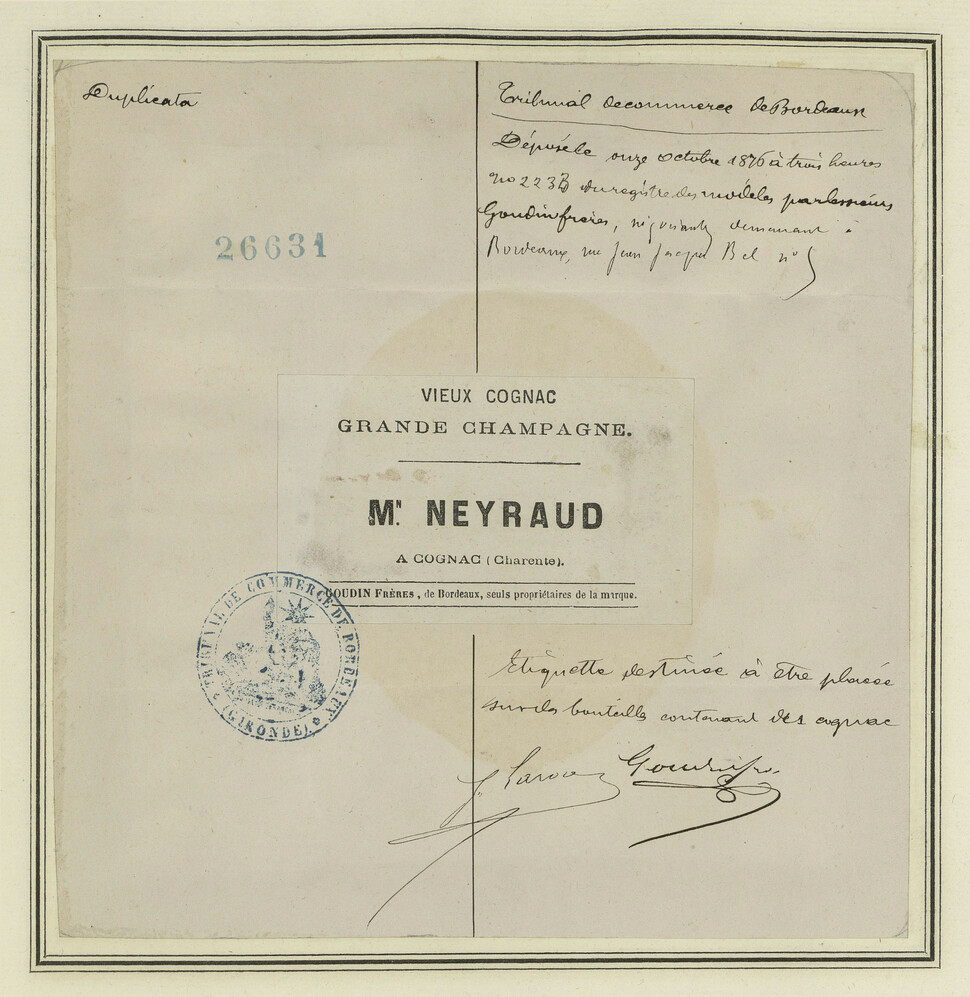 Duplicata
Tribunal de commerce de Bordeaux
Déposé le onze octobre 1876 à trois heures
no 223 du registre des modèles par les sieurs
Goudin frères, négociants demeurant à
Bordeaux, rue Jean Jacques Bel no 5
26631
VIEUX COGNAC
GRANDE CHAMPAGNE.
Mr. NEYRAUD
A COGNAC (Charente).
GOUDIN FRÈRES, de Bordeaux, seuls propriétaires de la marque.
TRIBUNAL DE COMMERCE DE BORDEAUX (GIRONDE)
Etiquette destinée à être placée
sur des bouteilles contenant des cognac
Goudin fr.